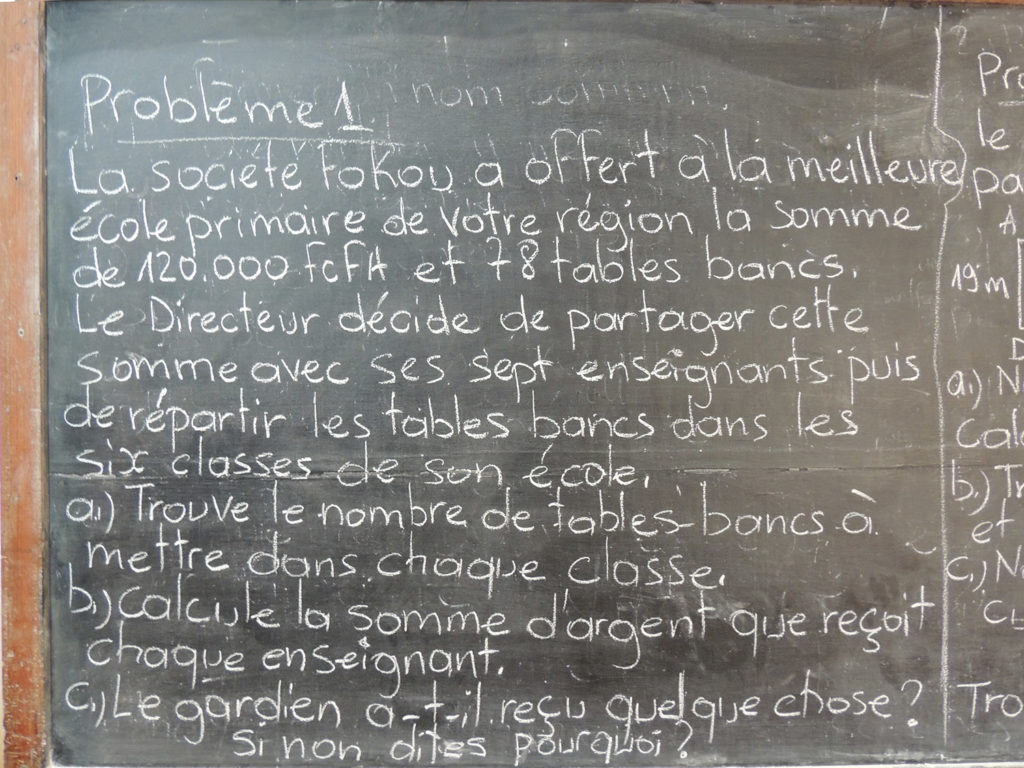 Problème 1
La société Fokou a offert à la meilleure
école primaire de votre région la somme
de 120.000 FCFA et 78 tables bancs.
Le Directeur décide de partager cette
somme avec ses sept enseignants puis
de répartir les tables bancs dans les
six classes de son école.
a.) Trouve le nombre de tables-bancs à
mettre dans chaque classe.
b.) Calcule la somme d'argent que reçoit
chaque enseignant.
c.) Le gardien a-t-il reçu quelque chose ?
Si non dites pourquoi ?
le
19m
a.)
b.)
et
c.)